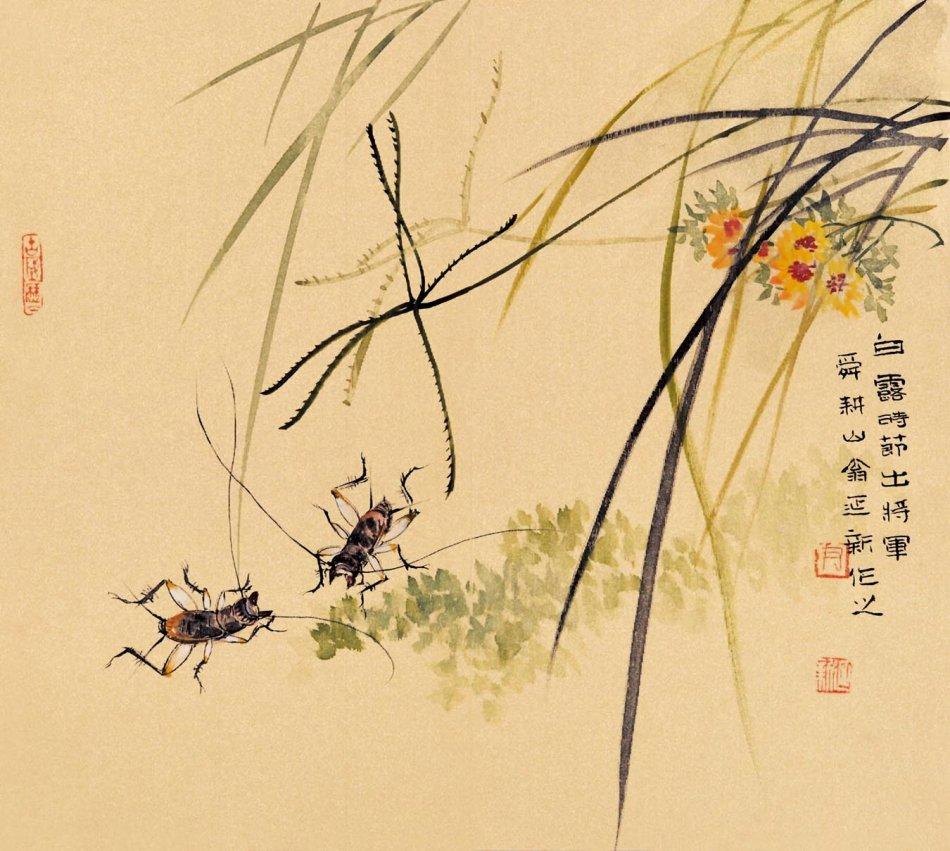 白露時節出將軍
舜耕山翁延新作之